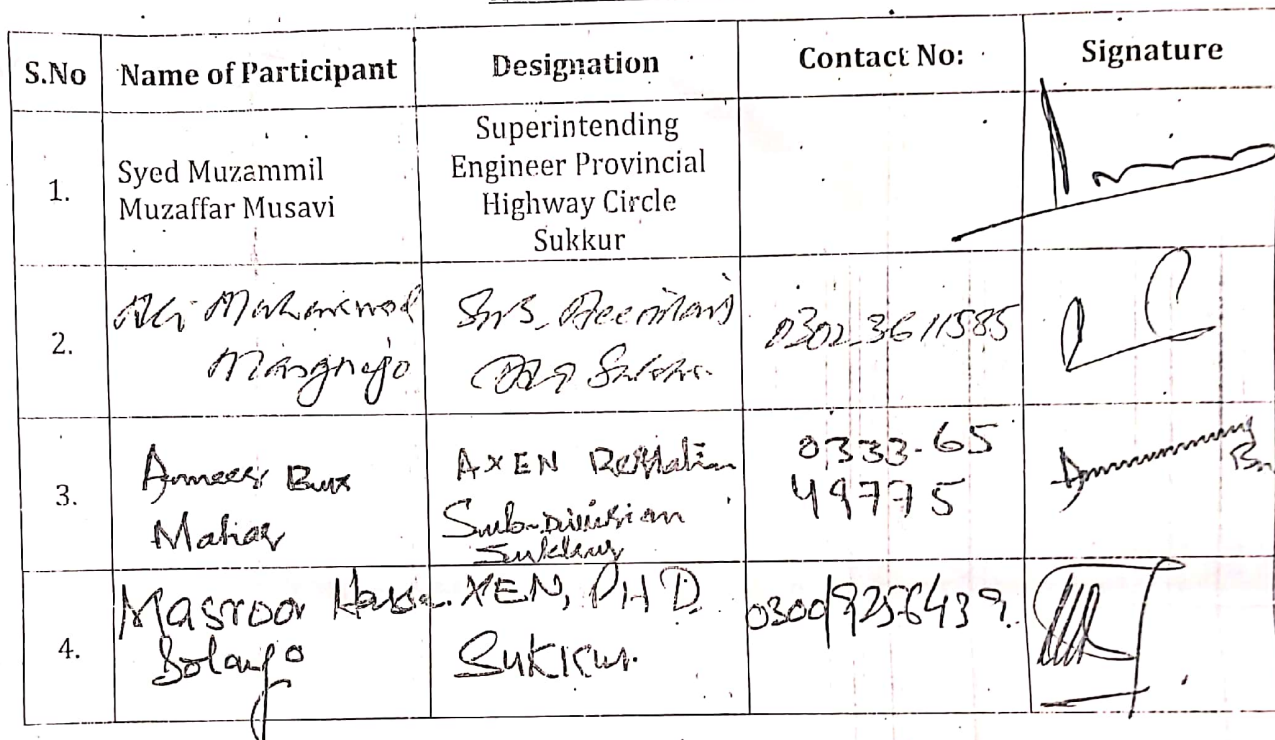 S.No Name of Participant Designation Contact No: Signature
1. Syed Muzammil Muzaffar Musavi Superintending Engineer Provincial Highway Circle Sukkur
2. Ali Muhammad Mangnejo 0302-3611585
3. Ameer Bux Mahar AXEN Sub-Division Sukkur 0333-65 49775
4. Masroor Hassan XEN, PHD Sukkur. 03009256439.